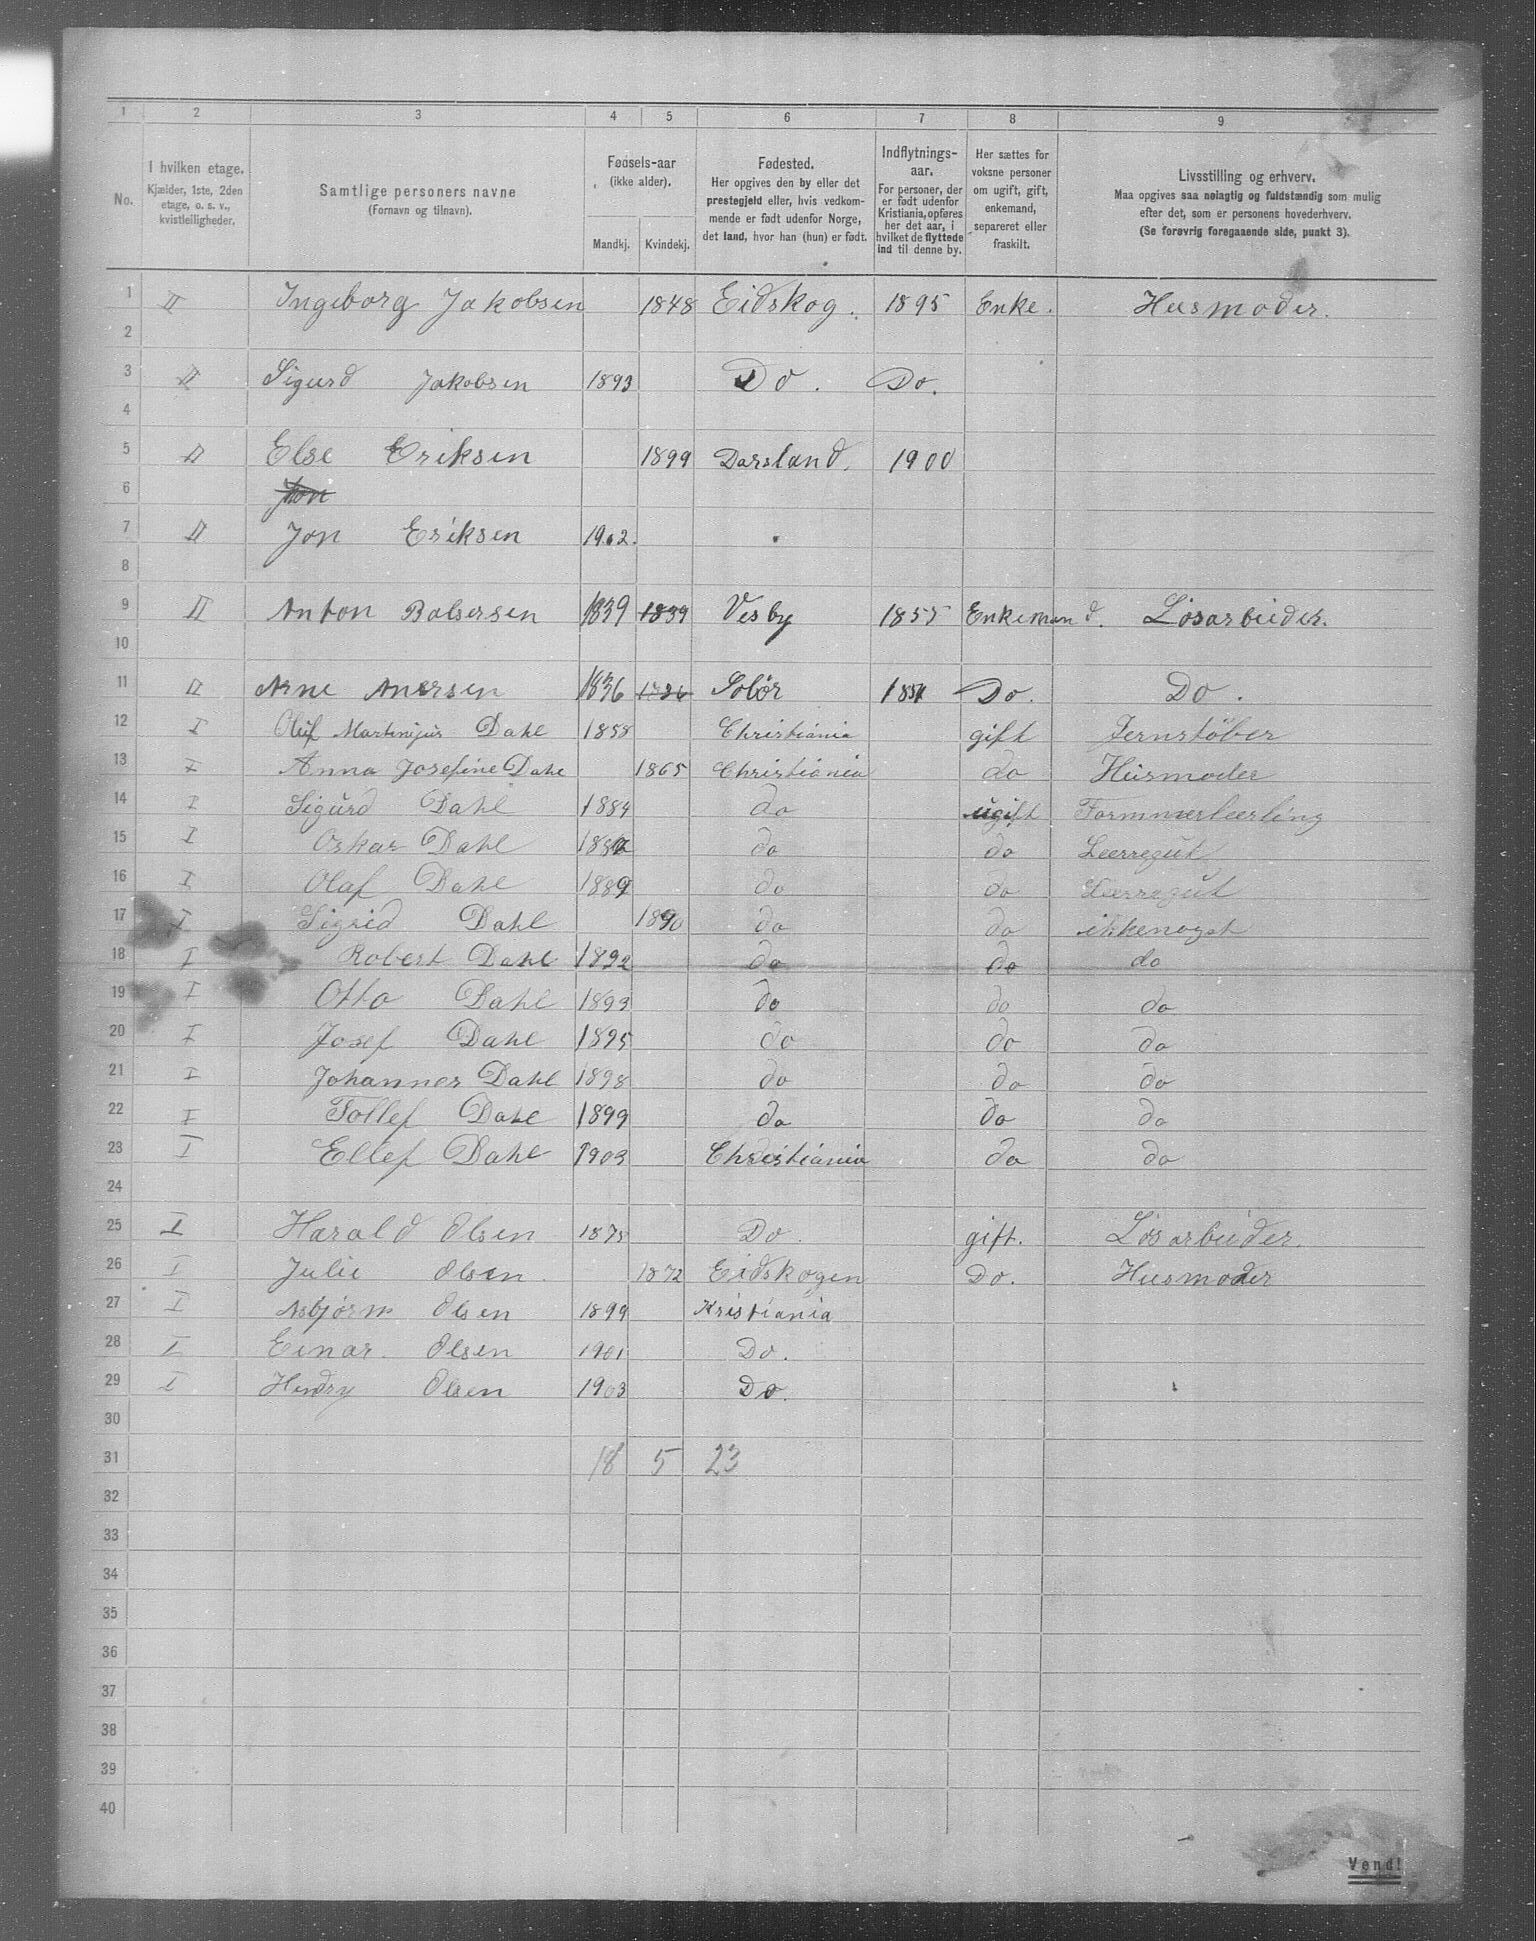 1 2 3 4 5 6 7 8 9
No.
I hvilken etage.
Kjælder, 1ste, 2den
etage, o. s. v.,
kvistleiligheder.
Samtlige personers navne
(Fornavn og tilnavn).
Fødsels-aar
(ikke alder).
Mandkj. Kvindekj.
Fødested.
Her opgives den by eller det
prestegjeld eller, hvis vedkom-
mende er født udenfor Norge,
det land, hvor han (hun) er født.
Indflytnings-
aar.
For personer, der
er født udenfor
Kristiania, opføres
her det aar, i
hvilket de flyttede
ind til denne by.
Her sættes for
voksne personer
om ugift, gift,
enkemand,
separeret eller
fraskilt.
Livsstilling og erhverv.
Maa opgives saa nøiagtig og fuldstændig som mulig
efter det, som er personens hovederhverv.
(Se forøvrig foregaaende side, punkt 3).
1 II Ingeborg Jakobsen 1848 Eidskog. 1895 Enke. Husmoder.
2
3 II Sigurd Jakobsen 1893 Do. Do.
4
5 II Else Eriksen 1899 Darsland. 1900
6 Jon
7 II Jon Eriksen 1902.
8
9 II Anton Balsersen 1839 1839 Vesby 1855 Enkemand. Løsarbieder.
10
11 II Arne Anersen 1836 1836 Solör 1851 Do. Do.
12 I Oluf Martinijus Dahl 1858 Christiania gift Jernstöber
13 I Anna Josefine Dahl 1865 Christiania do Husmoder
14 I Sigurd Dahl 1884 do ugift Formmerlærling
15 I Oskar Dahl do do Læregut
16 I Olaf Dahl 1889 do do Lærregut
17 I Sigrid Dahl 1890 do do ikkenoget
18 I Robert Dahl 1892 do do do
19 I Otto Dahl 1893 do do do
20 I Josef Dahl 1895 do do do
21 I Johannes Dahl 1898 do do do
22 I Tollef Dahl 1899 do do do
23 I Ellef Dahl 1903 Christiania do do
24
25 I Harald Olsen 1875 Do. gift. Løsarbieder.
26 I Julie Olsen. 1872 Eidskogen Do. Husmoder
27 I Asbjørn Olsen 1899 Kristiania
28 I Einar. Olsen 1901 Do.
29 I Hendry Olsen 1903 Do.
30
31 18 5 23
32
33
34
35
36
37
38
39
40
Vend!